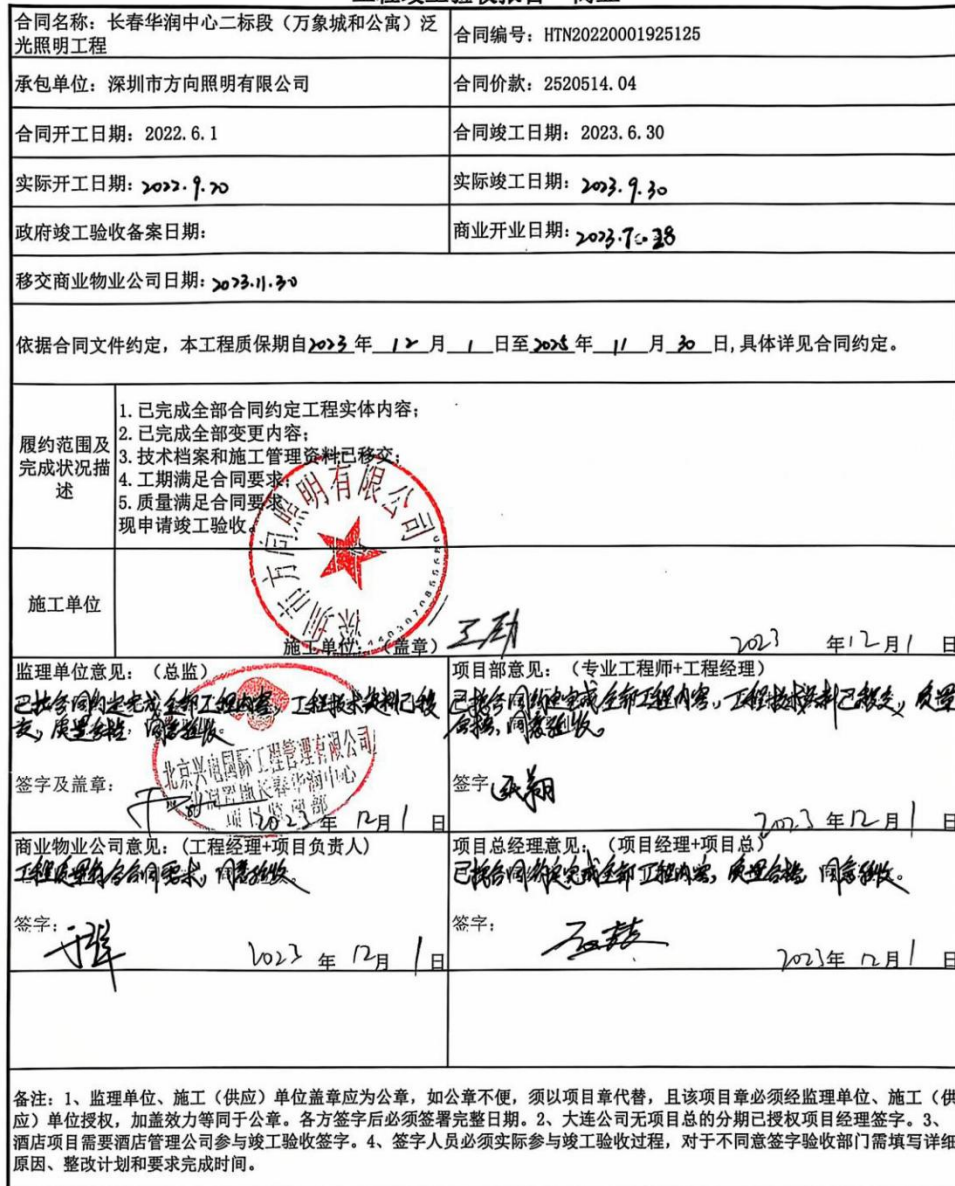 合同名称：长春华润中心二标段（万象城和公寓）泛
光照明工程
合同编号：HTN20220001925125
承包单位：深圳市方向照明有限公司
合同价款：2520514.04
合同开工日期：2022.6.1
合同竣工日期：2023.6.30
实际开工日期：2022.9.20
实际竣工日期：2023.9.30
政府竣工验收备案日期：
商业开业日期：
移交商业物业公司日期：2023.11.30
依据合同文件约定，本工程质保期自2023年 12 月 1 日至2025年 11 月 30 日,具体详见合同约定。
履约范围及
完成状况描
述
1.已完成全部合同约定工程实体内容；
2.已完成全部变更内容；
3.技术档案和施工管理资料已移交；
4.工期满足合同要求；
5.质量满足合同要求
现申请竣工验收。
深圳市方向照明有限公司
施工单位
施工单位：（盖章）
2023 年12月1日
监理单位意见：（总监）
已按合同约定完成全部工程内容，工程技术资料已移
交，质量合格，同意验收。
北京兴电国际工程管理有限公司
长春华润中心
项目监理部
签字及盖章：
2023年 12月1日
项目部意见：（专业工程师+工程经理）
已按合同约定完成全部工程内容，工程技术资料已移交，质量
合格，同意验收。
签字：
2023年12月1日
商业物业公司意见：(工程经理+项目负责人)
工程质量符合合同要求，同意验收。
签字：
2023年12月1日
项目总经理意见：（项目经理+项目总）
已按合同约定完成全部工程内容，质量合格，同意验收。
签字：
2023年12月1日
备注：1、监理单位、施工（供应）单位盖章应为公章，如公章不便，须以项目章代替，且该项目章必须经监理单位、施工（供
应）单位授权，加盖效力等同于公章。各方签字后必须签署完整日期。2、大连公司无项目总的分期已授权项目经理签字。3、
酒店项目需要酒店管理公司参与竣工验收签字。4、签字人员必须实际参与竣工验收过程，对于不同意签字验收部门需填写详细
原因、整改计划和要求完成时间。